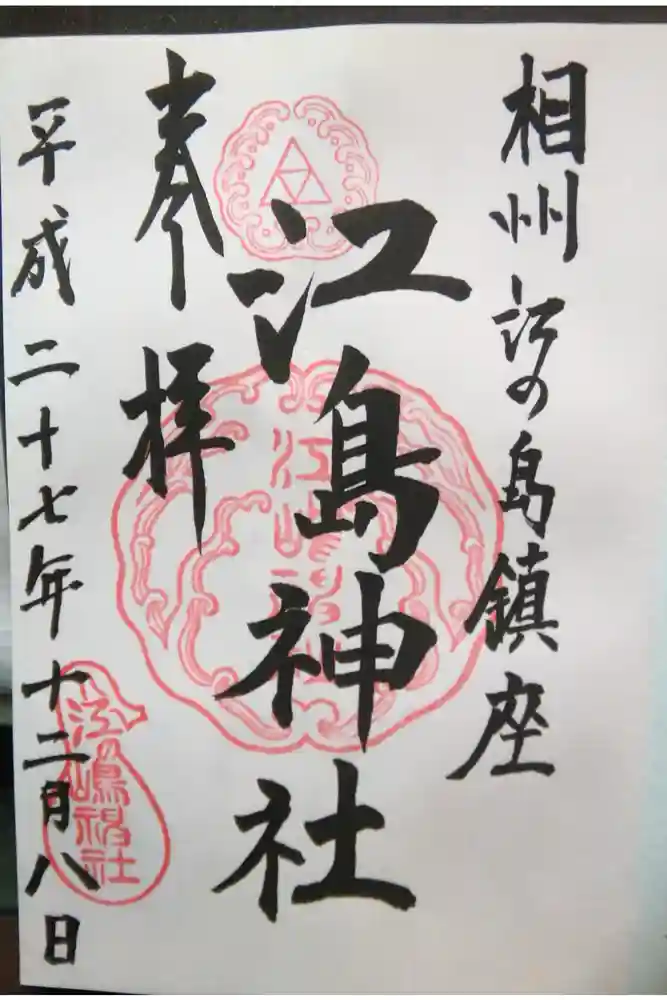 相州江の島鎮座
江島神社
奉拝
平成二十七年十二月八日
江の嶋神社